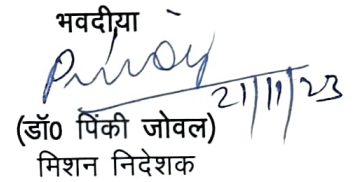 भवदीया
21/11/23
(डॉ0 पिंकी जोवल)
मिशन निदेशक